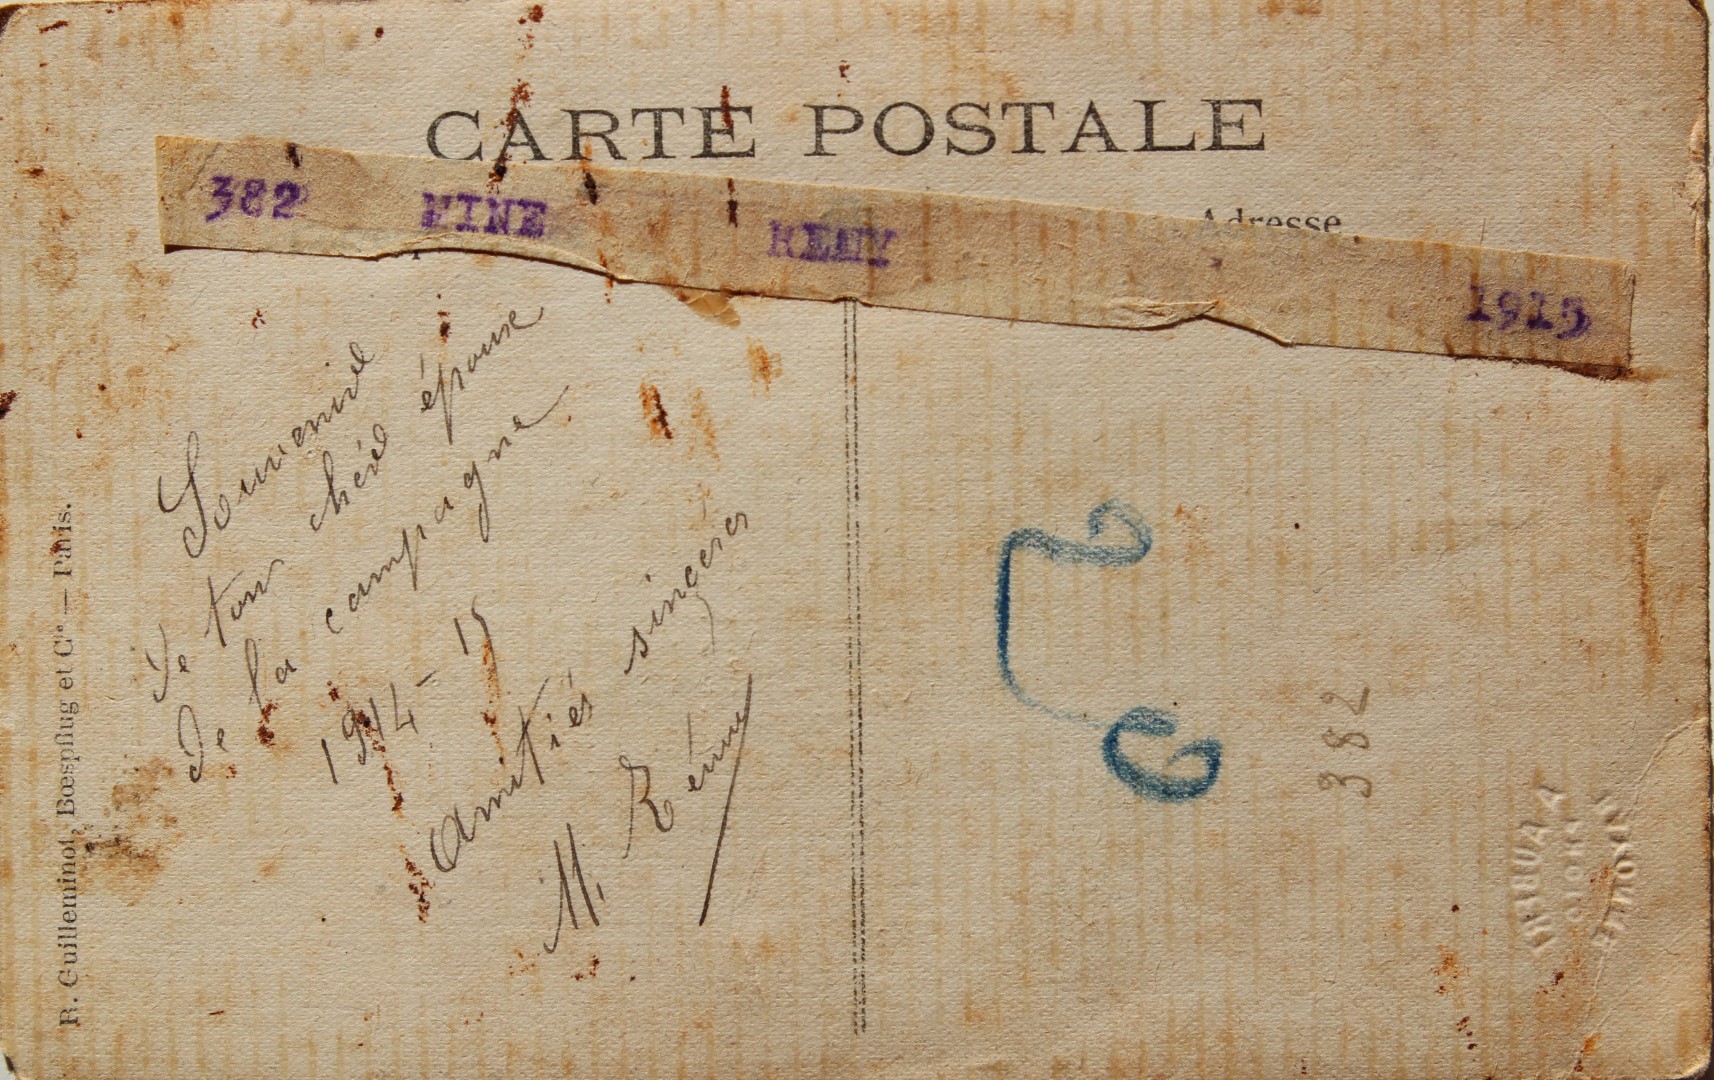 CARTE POSTALE
382 FINE REMY 1915
Adresse
Souvenire
De ton chére épouse
De la campagne
1914-15
Amitiés sinçeres
M. Rémy
382
R. Guilleminot, Bœspflug et Cie — Paris.